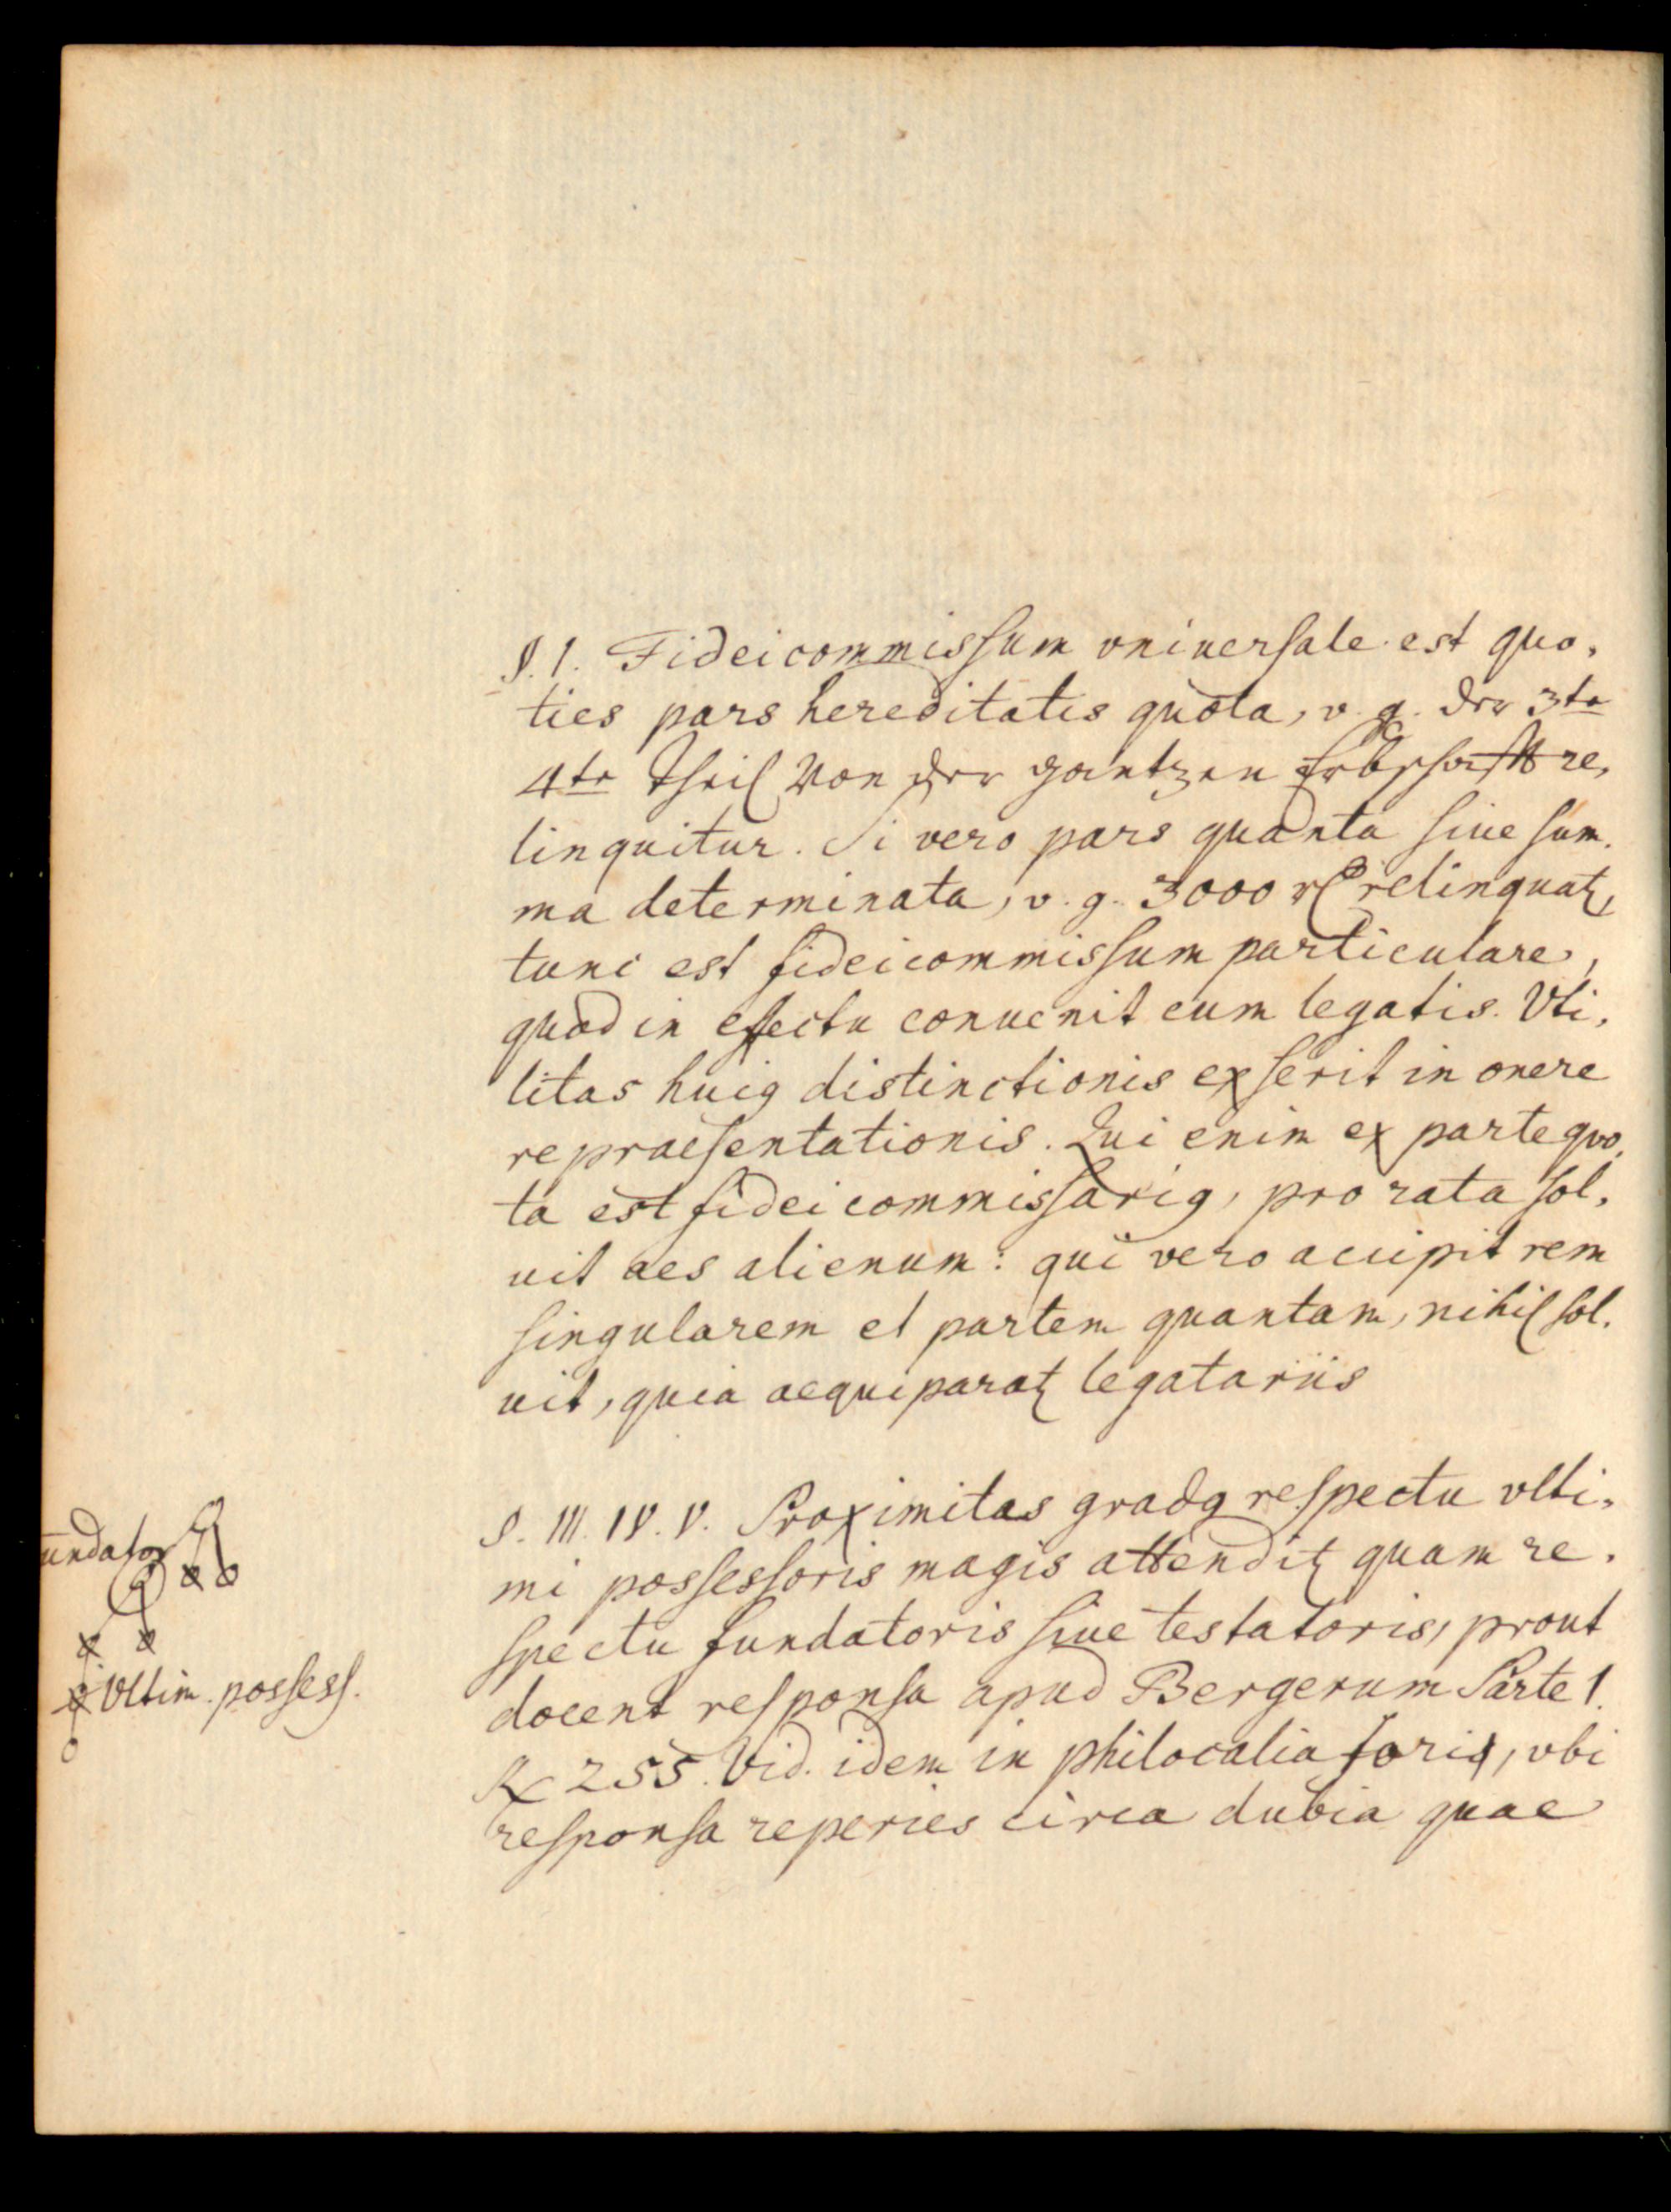 §. I. Fideicommissum vniuersale est quo,
ties pars hereditatis quota, v. g. der 3te
4te Theil Von der gantzen Erbschafft re,
linquitur. Si vero pars quanta siue sum,
ma determinata, v. g. 3000 rl relinquatꝛ,
tunc est fideicommissum particulare,
quod in effectu conuenit cum legatis. Vti,
litas huiꝰ distinctionis exserit in onere
repraesentationis. Qui enim ex parte quo,
ta est fideicommissariꝰ, pro rata sol,
uit aes alienum: qui vero accipit rem
singularem et partem quantam, nihil sol,
uit, quia aequiparatꝛ legatariis
§. III. IV. V. Proximitas gradꝰ respectu vlti,
mi possessoris magis attenditꝛ quam re,
spectu fundatoris siue testatoris, prout
docent responsa apud Bergerum Parte 1.
255. Vid. idem in philocalia foris, vbi
responsa reperies circa dubia quae
undator
Vltim. possess.